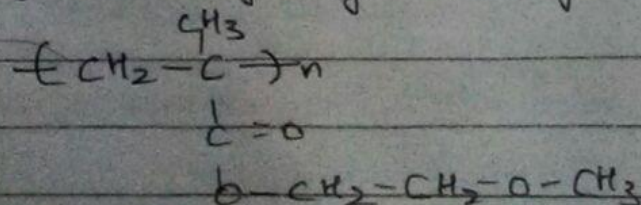 CH3
-( CH2 - C -)n
C = O
O - CH2 - CH2 - O - CH3